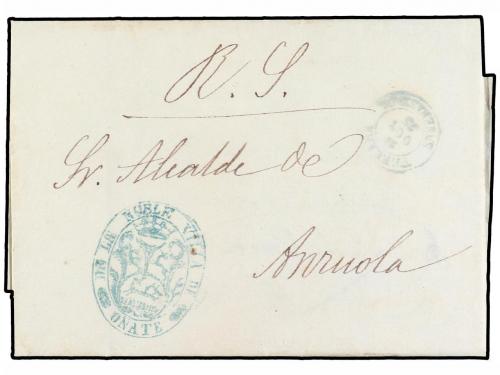 R. S.
Sr. Alcalde de
Anzuola
DE LA NOBLE VILLA DE
OÑATE